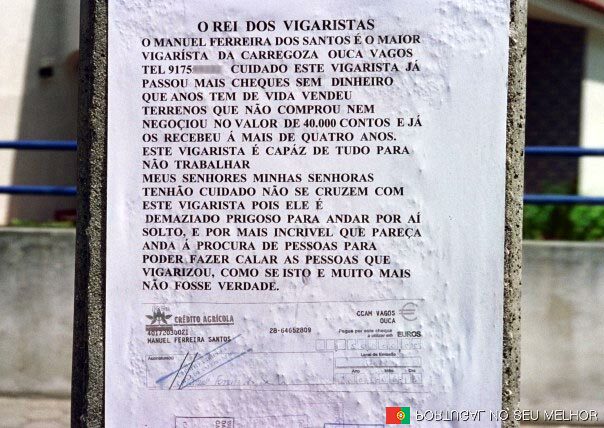 O REI DOS VIGARISTAS
O MANUEL FERREIRA DOS SANTOS É O MAIOR
VIGARÍSTA DA CARREGOZA OUCA VAGOS
TEL 9175 CUIDADO ESTE VIGARISTA JÁ
PASSOU MAIS CHEQUES SEM DINHEIRO
QUE ANOS TEM DE VIDA VENDEU
TERRENOS QUE NÃO COMPROU NEM
NEGOCIOU NO VALOR DE 40.000 CONTOS E JÁ
OS RECEBEU Á MAIS DE QUATRO ANOS.
ESTE VIGARISTA É CAPÁZ DE TUDO PARA
NÃO TRABALHAR
MEUS SENHORES MINHAS SENHORAS
TENHÃO CUIDADO NÃO SE CRUZEM COM
ESTE VIGARISTA POIS ELE É
DEMAZIADO PRIGOSO PARA ANDAR POR AÍ
SOLTO, E POR MAIS INCRIVEL QUE PAREÇA
ANDA Á PROCURA DE PESSOAS PARA
PODER FAZER CALAR AS PESSOAS QUE
VIGARIZOU, COMO SE ISTO E MUITO MAIS
NÃO FOSSE VERDADE.
CRÉDITO AGRÍCOLA
CCAM VAGOS
OUCA
40172030021
28-64652809
MANUEL FERREIRA SANTOS
Pague por este cheque
a utilizar em EUROS
Assinatura(s)
Local de Emissão
Ano Mês Dia
PORTUGAL NO SEU MELHOR